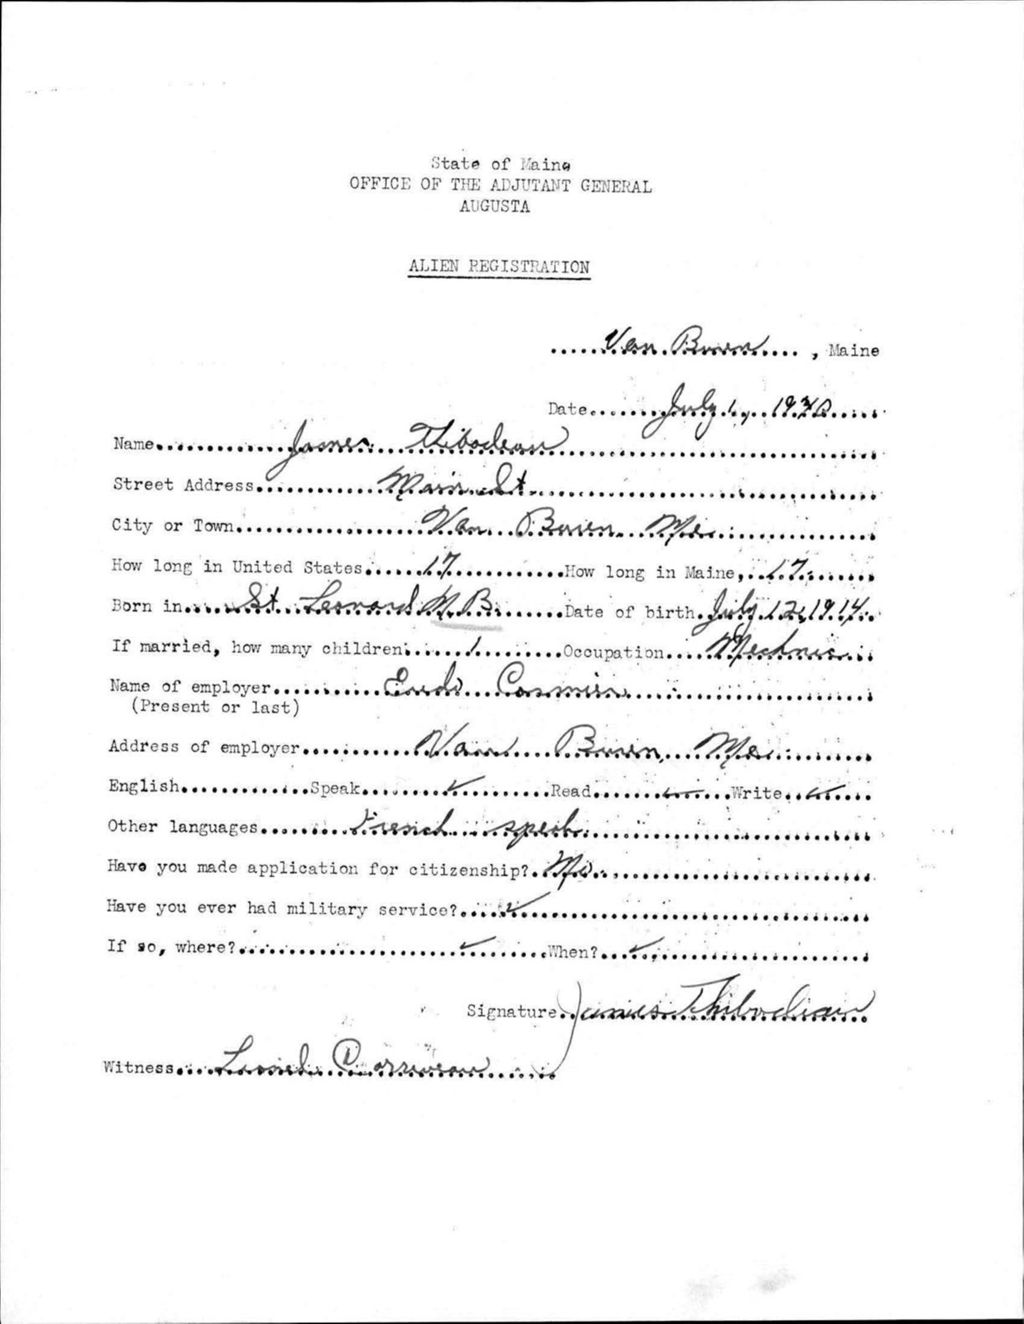 State of Maine
OFFICE OF THE ADJUTANT GENERAL
AUGUSTA
ALIEN REGISTRATION
Van Buren, Maine
Date July 1, 1940
Name James Thibodeau
Street Address Main St.
City or Town Van Buren, Me.
How long in United States 17 How long in Maine, 17
Born in St. Leonard N.B. Date of birth July 12, 1914
If married, how many children 1 Occupation Mechnic
Name of employer
(Present or last)
Address of employer Van Buren, Me.
English Speak ✓ Read ✓ Write ✓
Other languages French speak
Have you made application for citizenship? No
Have you ever had military service? ✓
If so, where? ✓ When? ✓
Signature James Thibodeau
Witness Lionel